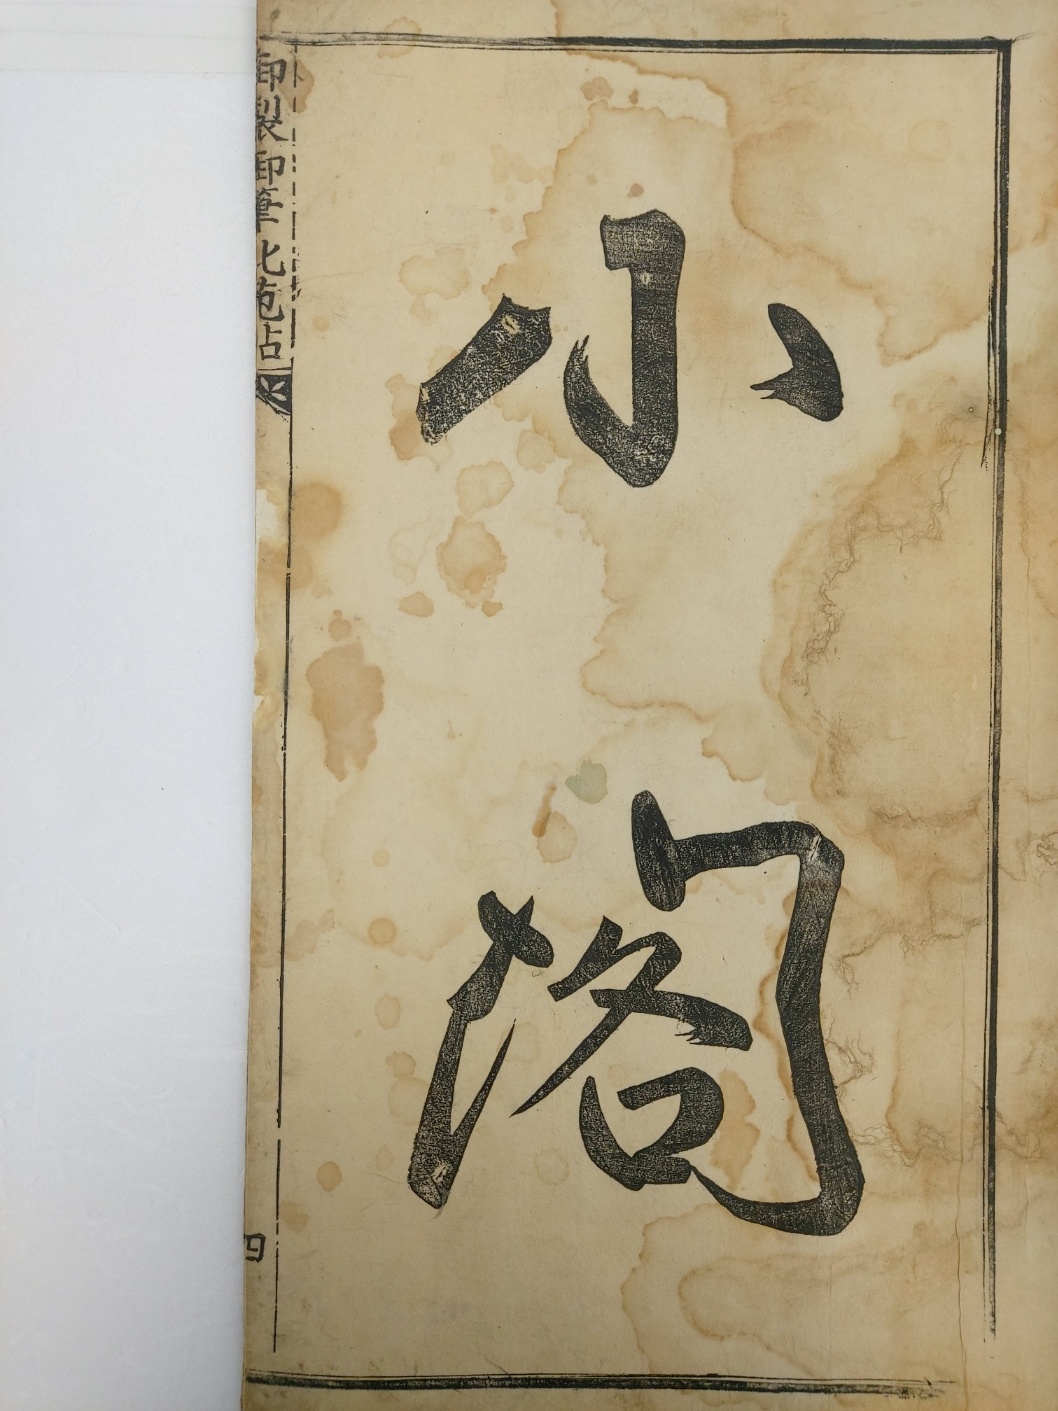 小閣
御製御筆北苑帖
四